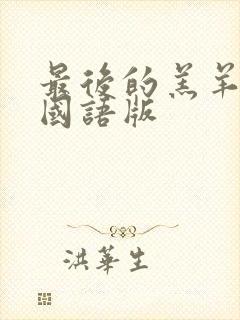 最後的羔羊
國語版
洪華生